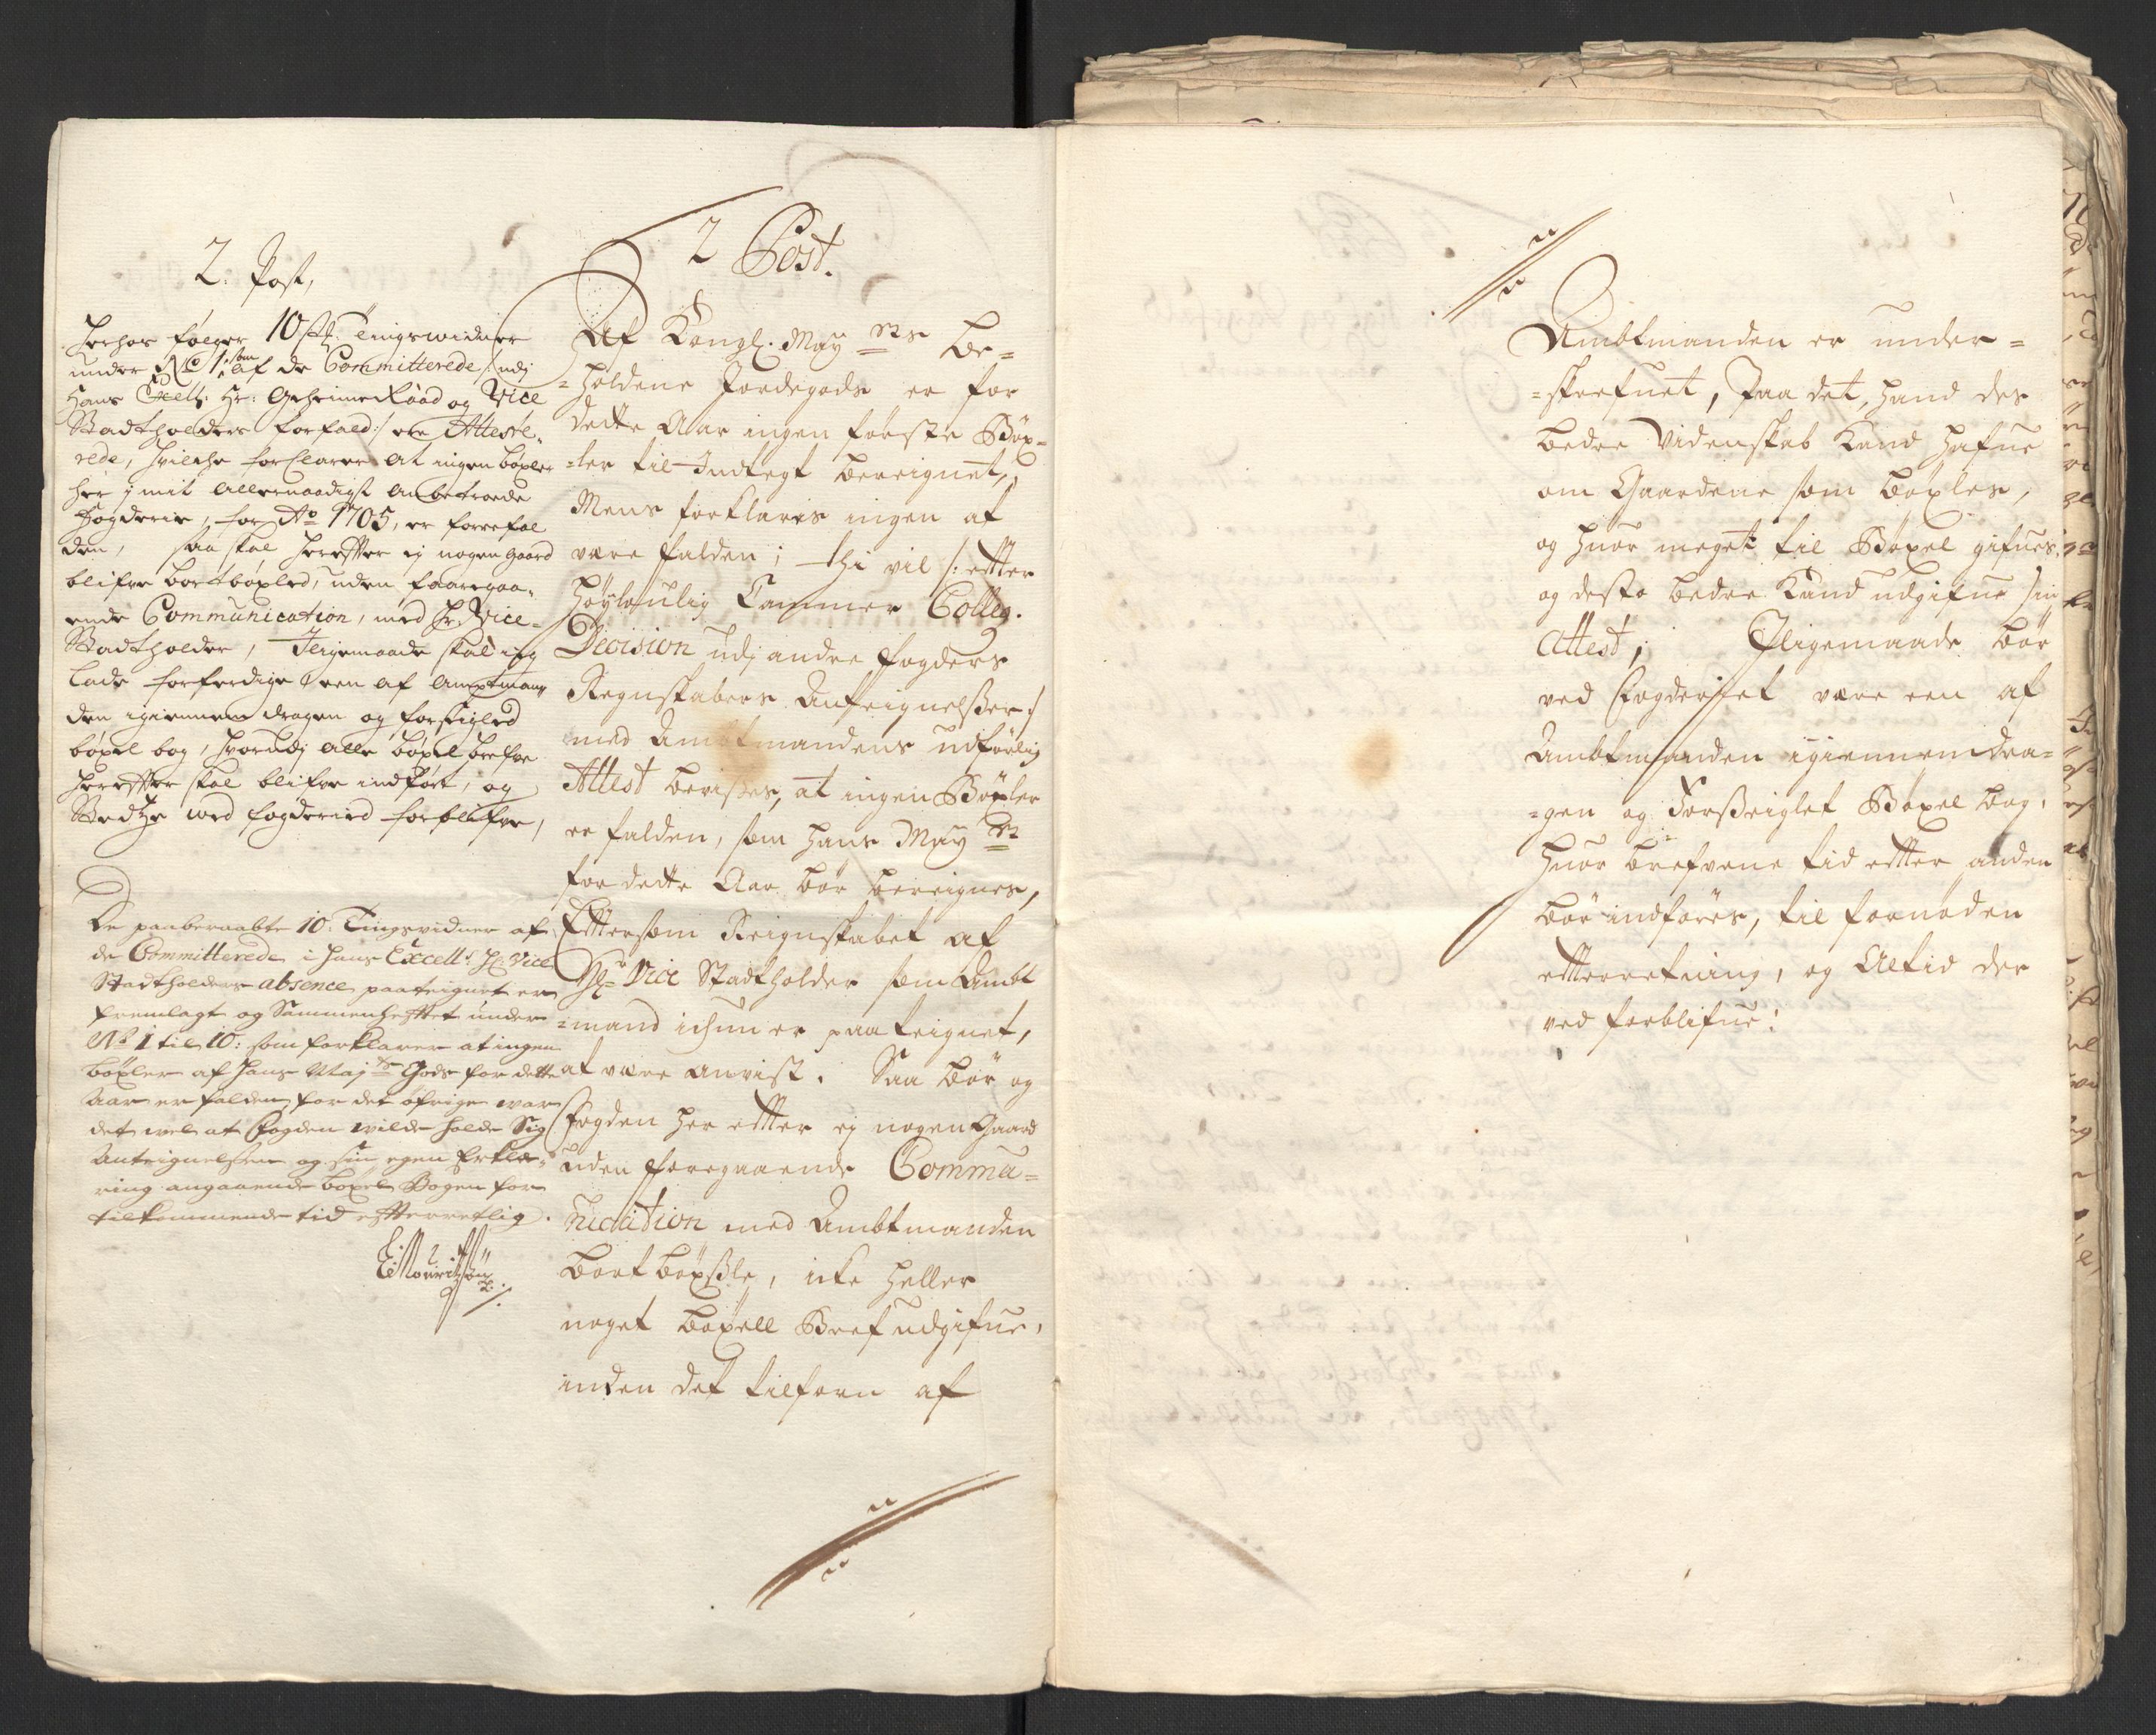 2. Post,
Herhos følger 10 st: Tingswidner
under No 1. som af de Committerede /: udj
Hans Excell: Hr: Geheime Raad og Vice
Stadtholders forfald :/ ere Atteste-
rede, hvilche forClarer at ingen böxler
her j mit allernaadigst anbetroede
Fogderie, for Ao 1705, er forrefal
den, saa skal herefter ej nogen gaard
blifve bortböxled, uden foaregaa-
ende Communication, med Hr. Vice-
Stadtholder, Iligemaade skal ieg
lade forferdige een af amptman
den igiennemdragen og forseigled
böxel bog, hvorudj alle böxel brefve
herefter skal blifve indført, og
Stedtze ved fogderied forblifve,
De paaberaabte 10: Tingsvidner af
de Committerede i Hans Excell: Hr Vice
Stadtholders absence paateignet er
fremlagt og Sammenhefftet under
No 1 til 10: som forklarer at ingen
böxler af Hans Maj:ts Gods for dette
Aar er falden, for det öfrige var
det vel at Fogden vilde holde Sig
Anteignelsen og sin egen Erklæ-
ring angaaende böxel Bogen for
tilkommende tid efterretlig.
2 Post.
Af Kongl. May:ts Be=
=holdene Jordegods er for
dette Aar ingen förste Böx=
=ler til Indtegt bereignet,
Mens forklaris ingen at
være falden; thi vil /: efter
Höylovlig Cammer Colleg.
Decision udj andre fogders
Regnskabers Anteignelsser :/
med Ambtmandens udförlig
Attest bevises, at ingen Böxler
er falden, som Hans May:t
for dette Aar bör bereignes,
Eftersom Reignskabet af
Hr Vice Stadtholder som Ambt
=mand ichun er paateignet,
at være anvist. Saa bör og
Fogden her efter ej nogen Gaard
uden foregaaende Commu=
nication med Ambtmanden
bortböxsle, icke heller
noget böxell Bref udgifve,
inden det tilforn af
Ambtmanden er under=
=skrefuet, Paa det, hand des
bedre Videnskab kand hafue
om Gaardene som böxles,
og huor meget til Böxel gifues,
og desto bedre kand udgifue sin
Attest; Iligemaade bör
ved Fogderiet være een af
Ambtmanden igiennemdra=
=gen og Forsseiglet Böxel bog,
huor brefvene tid efter anden
bör indföres, til fornöden
efterretning, og Altid der
ved forblifue.